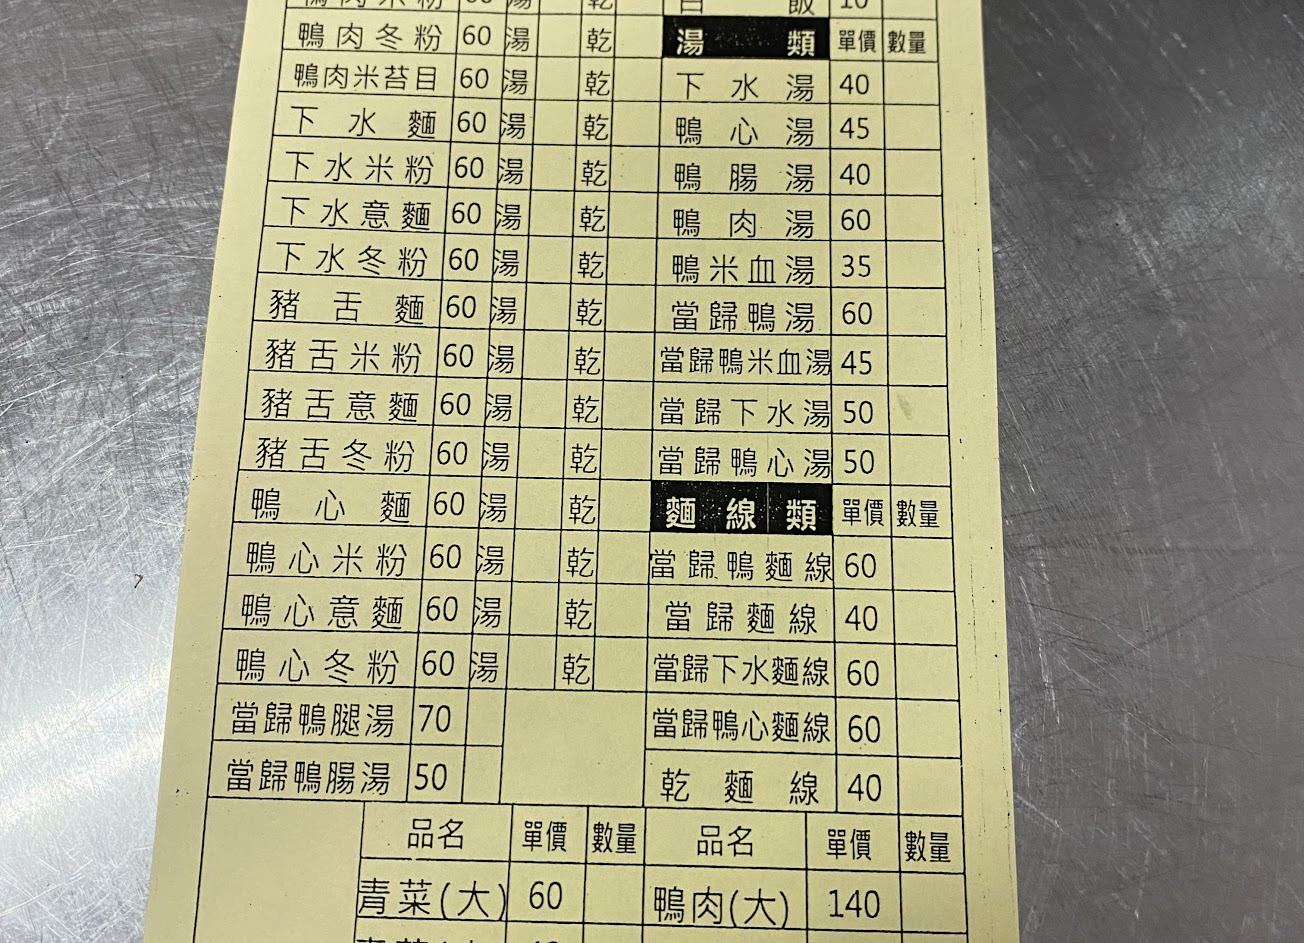 鴨肉米粉 60 湯 乾 白飯 10
鴨肉冬粉 60 湯 乾 湯類 單價 數量
鴨肉米苔目 60 湯 乾 下水湯 40
下水麵 60 湯 乾 鴨心湯 45
下水米粉 60 湯 乾 鴨腸湯 40
下水意麵 60 湯 乾 鴨肉湯 60
下水冬粉 60 湯 乾 鴨米血湯 35
豬舌麵 60 湯 乾 當歸鴨湯 60
豬舌米粉 60 湯 乾 當歸鴨米血湯 45
豬舌意麵 60 湯 乾 當歸下水湯 50
豬舌冬粉 60 湯 乾 當歸鴨心湯 50
鴨心麵 60 湯 乾 麵線類 單價 數量
鴨心米粉 60 湯 乾 當歸鴨麵線 60
鴨心意麵 60 湯 乾 當歸麵線 40
鴨心冬粉 60 湯 乾 當歸下水麵線 60
當歸鴨腿湯 70 當歸鴨心麵線 60
當歸鴨腸湯 50 乾麵線 40
品名 單價 數量 品名 單價 數量
青菜(大) 60 鴨肉(大) 140